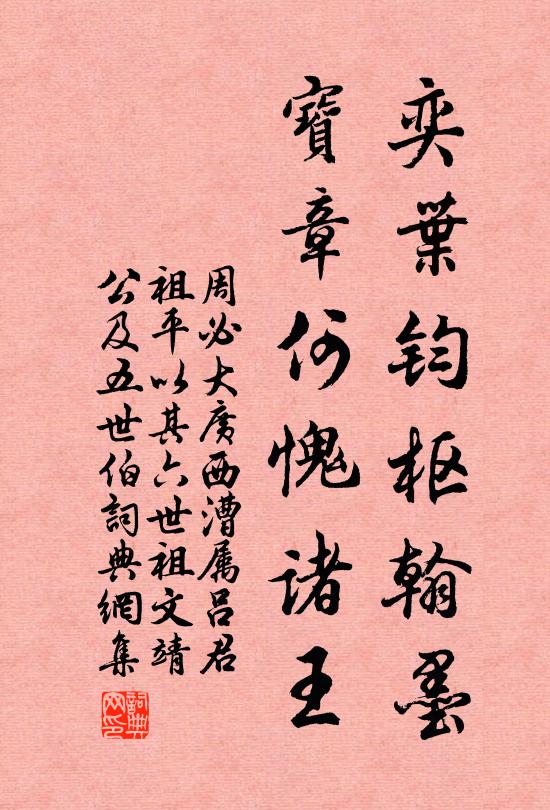 奕葉鈞樞翰墨
寶章何愧諸王
周必大廣西漕属呂君
祖平以其六世祖文靖
公及五世伯詞典網集
詞典
网印